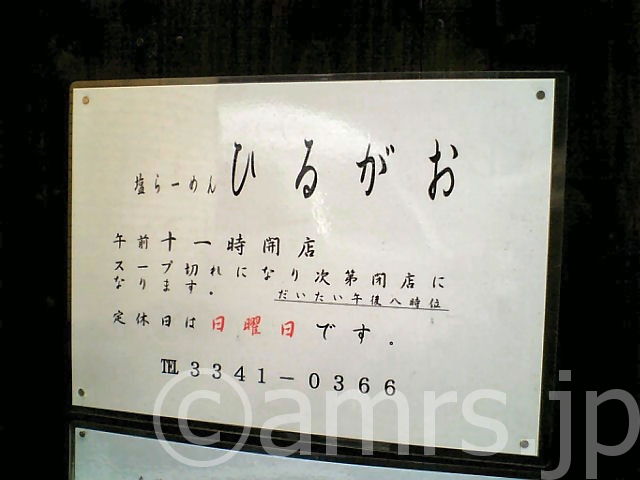 塩らーめん ひるがお
午前十一時開店
スープ切れになり次第閉店に
なります。 だいたい午後八時位
定休日は日曜日です。
℡ 3341-0366
©amrs.jp